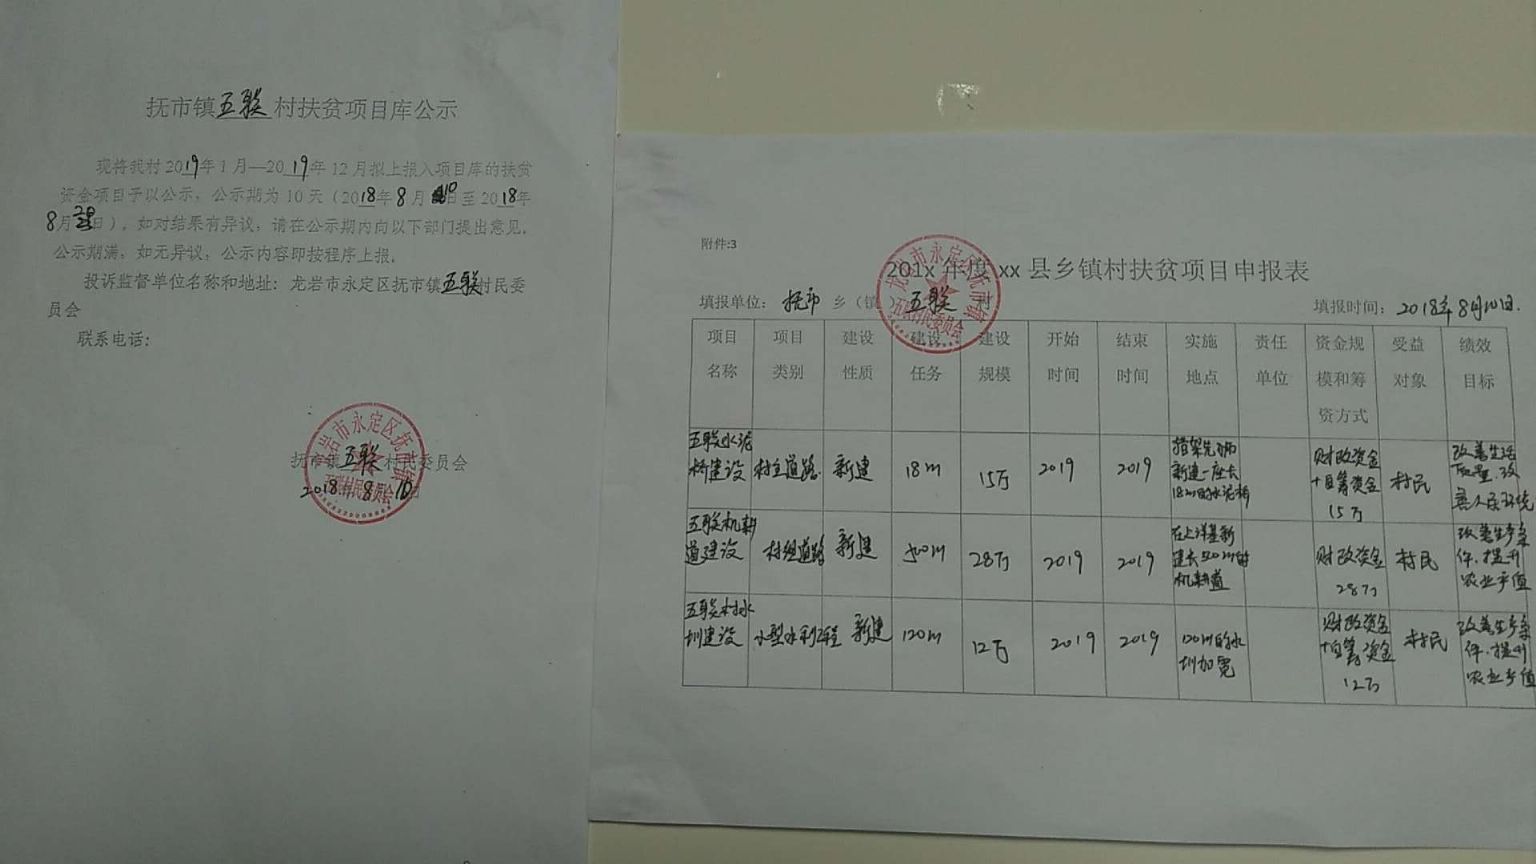 抚市镇五联村扶贫项目库公示
现将我村2019年1月—2019年12月拟上报入项目库的扶贫
资金项目予以公示，公示期为10天（2018年8月10日至2018年
8月20日），如对结果有异议，请在公示期内向以下部门提出意见。
公示期满，如无异议，公示内容即按程序上报。
投诉监督单位名称和地址：龙岩市永定区抚市镇五联村民委
员会
联系电话：
抚市镇五联村民委员会
2018年8月10日
附件:3
201x年度xx县乡镇村扶贫项目申报表
填报单位：抚市乡（镇）五联村 填报时间：2018年8月10日.
项目名称 项目类别 建设性质 建设任务 建设规模 开始时间 结束时间 实施地点 责任单位 资金规模和筹资方式 受益对象 绩效目标
五联水泥桥建设 村主道路 新建 18m 15万 2019 2019 新建一座长18m的水泥桥 财政资金+自筹资金15万 村民 改善生活
五联机耕道建设 村组道路 新建 500m 28万 2019 2019 在上洋基新建长500m的机耕道 财政资金28万 村民 改善生产条件.提升农业产值
五联村水圳建设 小型水利工程 新建 120m 12万 2019 2019 120m的水圳加宽 财政资金+自筹资金12万 村民 改善生产条件.提升农业产值